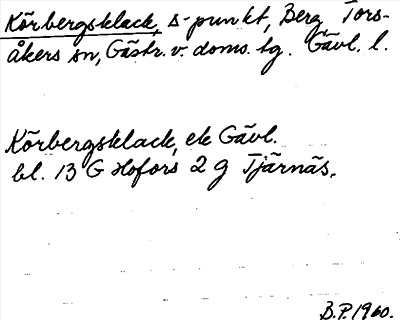 Körbergsklack, s-punkt, Berg, Tors-
åkers sn, Gästr. v. doms. tg. Gävl. l.
Körbergsklack, ek Gävl.
bl. 13 G Hofors 2 g Tjärnäs.
B.P. 1960.